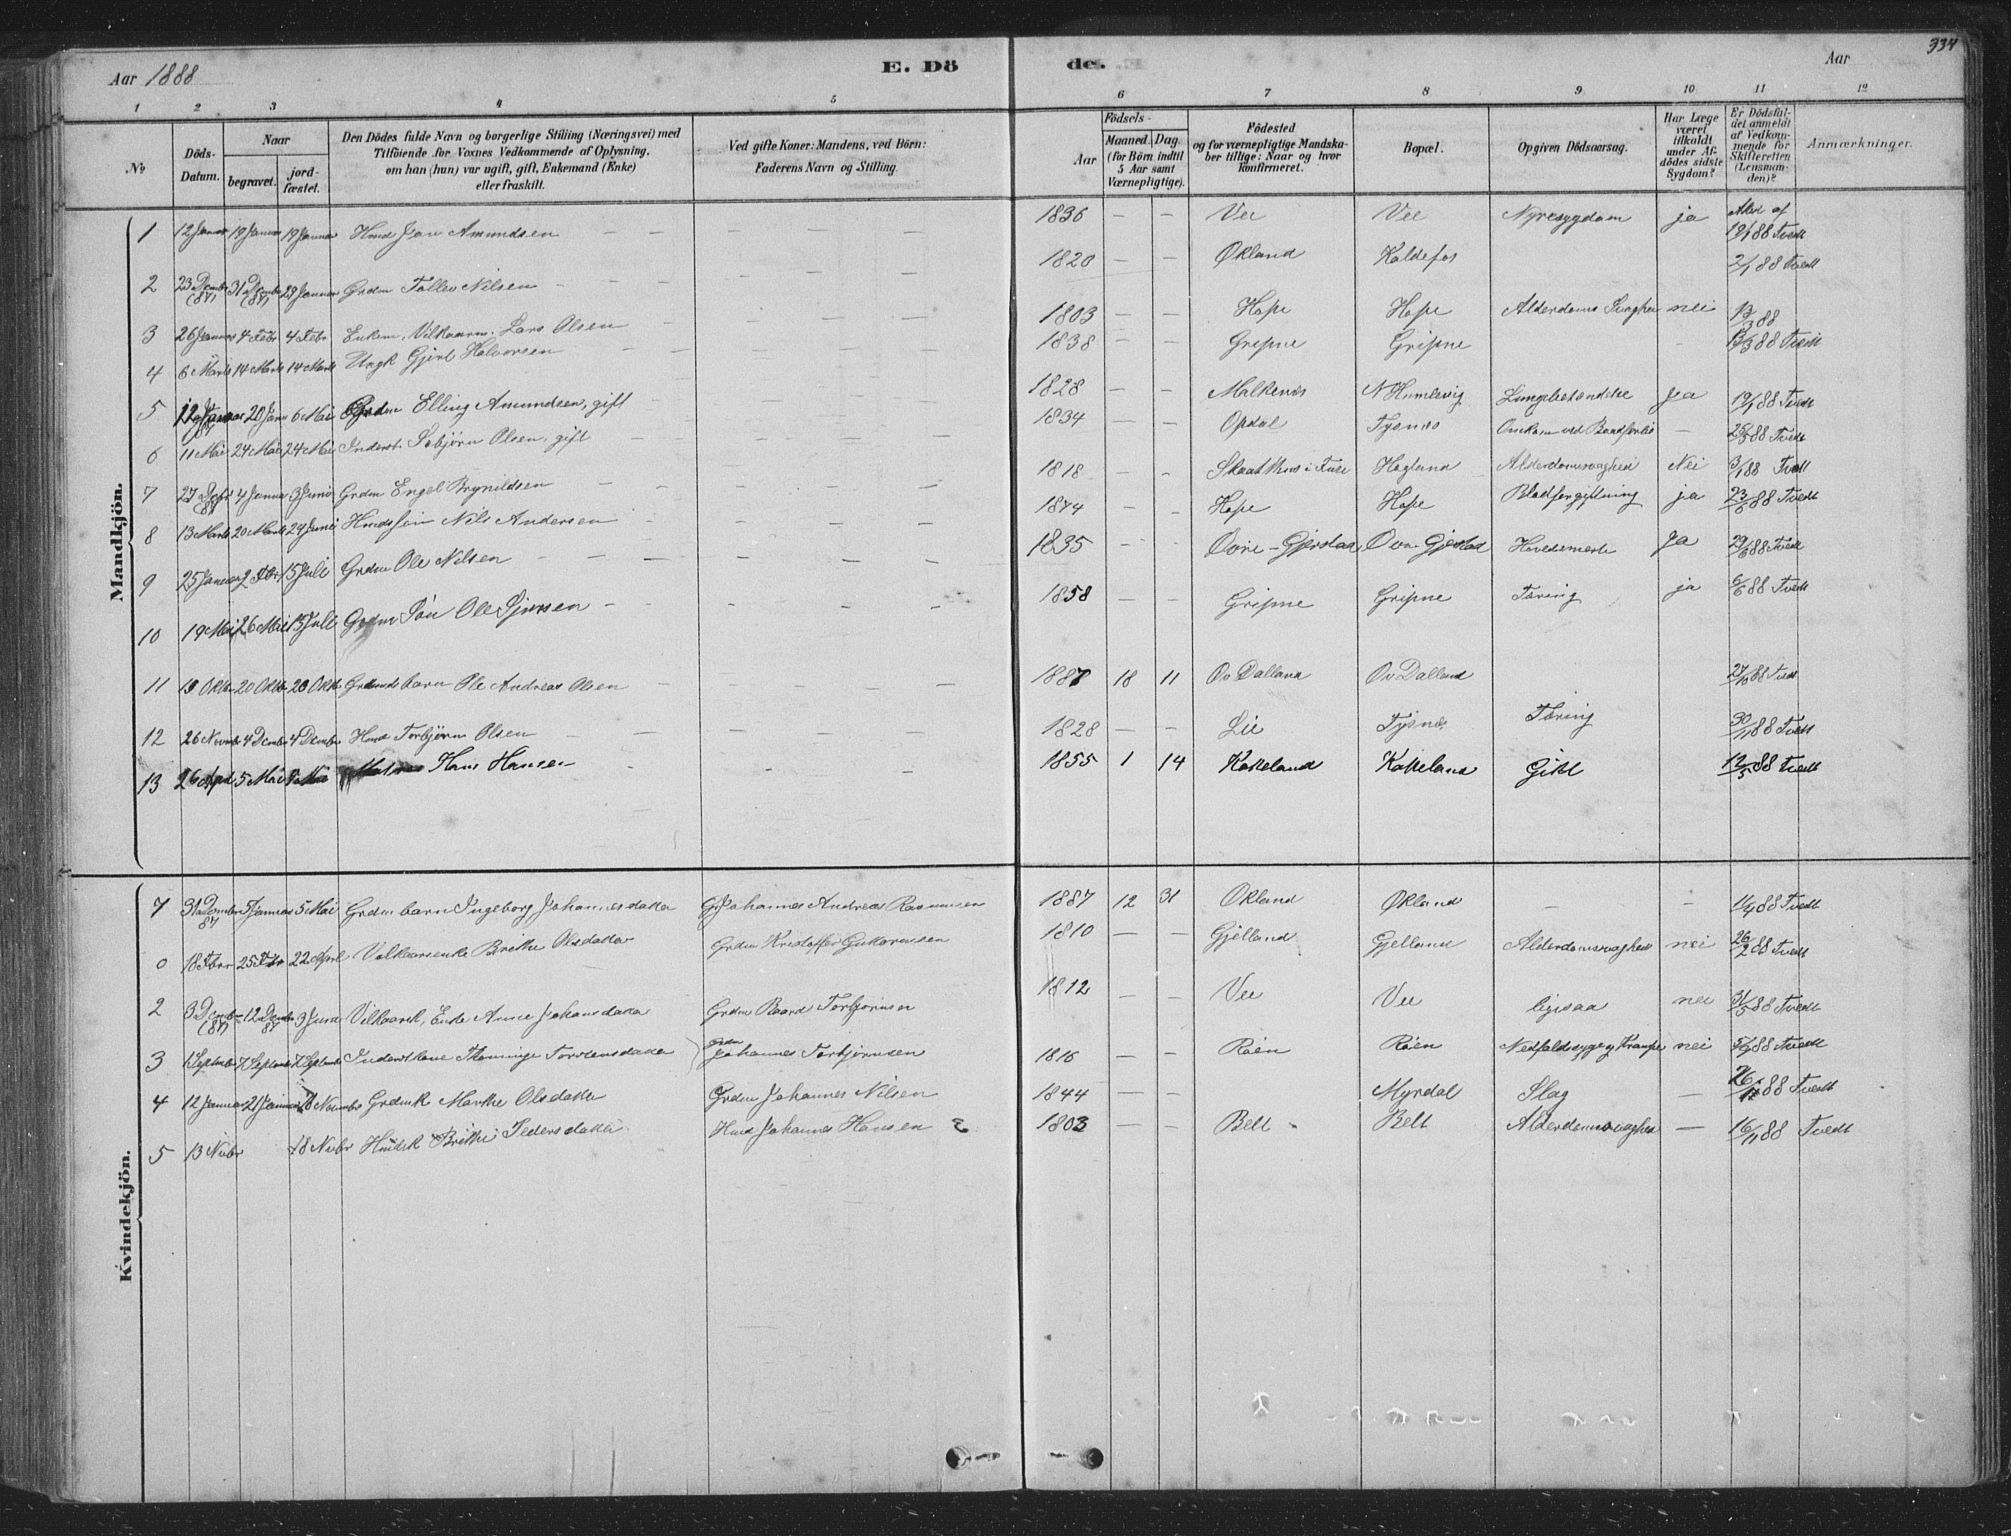 Aar 1888
E. Dö
des.
Aar
334
1 2 3 4 5 6 7 8 9 10 11 12
No
Döds-Datum.
Naar
begravet.
jord-fæstet.
Den Dödes fulde Navn og borgerlige Stilling (Næringsvei) med
Tilföiende for Voxnes Vedkommende af Oplysning,
om han (hun) var ugift, gift, Enkemand (Enke)
eller fraskilt.
Ved gifte Koner: Mandens, ved Börn:
Faderens Navn og Stilling.
Födsels-
Aar
Maaned. Dag.
(for Börn indtil
5 Aar samt
Værnepligtige).
Födested
og for værnepligtige Mandska-
ber tillige: Naar og hvor
konfirmeret.
Bopæl.
Opgiven Dödsaarsag.
Har Læge
været
tilkaldt
under Af-
dödes sidste
Sygdom?
Er Dödsfal-
det anmeldt
af Vedkom-
mende for
Skifteretten
(Lensman-
den)?
Anmærkninger.
Mandkjön.
1 12 Januar 19 Januar 19 Januar Hmd Jan Amundsen — — 1836 — — Vee Vee Nyresygdom ja 19/1 88 Tvedt
2 23 Dcmbr (87) 31 Dcmbr (87) 28 Januar Grdm Tollev Nilsen 1820 Økland Koldefos 2/1 88 Tvedt
3 26 Januar 4 Febr 4 Febr Enkem. Vilkaarm. Lars Olsen — 1803 — — Hope Hope Alderdoms Svaghed nei 88
4 6 Marts 14 Marts 14 Marts Ungk Gjert Halvorsen — 1838 — — Gripne Gripne — 88 Tvedt
5 12 Januar 20 Janu 6 Mai Grdm Elling Amundsen, gift — 1828 — — Malkenes N Humlevig Lungebetændelse Ja 19/1 88 Tvedt
6 11 Mai 24 Mai 24 Mai Inderst Sebjørn Olsen, gift — 1834 — — Opdal Tysnes Omkom ved Baadforlis — 25/5 88 Tvedt
7 27 Dcbr 4 Janua 3 Juni Grdm Engel Brynildsen — 1818 — — Skaathus i Fuse Hagland Alderdomssvaghed Nei 3/1 88 Tvedt
8 13 Marts 20 Marts 24 Juni Hmds søn Nils Andersen — 1874 — — Hope Hope Blodforgiftning ja 23/6 88 Tvedt
9 25 Januar 2 Febr 15 Juli Grdm Ole Nilsen — 1835 — — Øvre-Gjerstad Øvre Gjerstad Hovedsmerte Ja 88 Tvedt
10 19 Mai 26 Mai 15 Juli Grdm Søn Ole Sjursen — 1858 — — Gripne Gripne Tæring ja 6/6 88 Tvedt
11 19 Oktbr 20 Oktbr 20 Oktb Grdmds barn Ole Andreas Olsen — 1887 18 11 Øv Dalland Øv Dalland 27/10 88 Tvedt
12 26 Novmbr 4 Dcmbr 4 Dcmbr Hmd Torbjørn Olsen — 1828 — — Lie Tysnes Tæring 30/11 88 Tvedt
13 26 April 5 Mai Hans Hansen — 1855 1 14 Kakeland Kakeland Gikt 12/5 88 Tvedt
Kvindekjön.
7 31 Dcmbr 87 7 Januar 5 Mai Grdm barn Ingeborg Johannesdatter Gr Johannes Andreas Rasmussen 1887 12 31 Økland Økland — — 11/4 88 Tvedt
0 18 Febr 25 Febr 22 April Vilkaarsenke Brithe Olsdatter Grdm Kristoffer Guttormsen 1810 — — Gjelland Gjelland Alderdomssvaghed nei 26/2 88 Tvedt
2 3 Dcmbr (87) 12 Dcmbr 87 3 Juni Vilkaarsk, Enke Anne Johansdatter Grdm Baard Torbjørnsen 1812 — — Vee Vee ligesaa nei 31/5 88 Tvedt
3 1 Septmbr 7 Septmbr 7 Septmbr Inderstkone Torstensdatter Grdm Johannes Torbjørnsen 1816 — — Røen Røen Nedfaldssyge og Krampe nei 88 Tvedt
4 12 Januar 21 Januar 18 Novmbr Grdmk Marthe Olsdatter Grdm Johannes Nilsen 1844 — — Myrdal Slag — 88 Tvedt
5 13 Novbr 18 Novbr Hmdsk Brithe Pedersdatter Hmd Johannes Hansen 1803 — — Belt Belt Alderdomssvaghed — 16/11 88 Tvedt